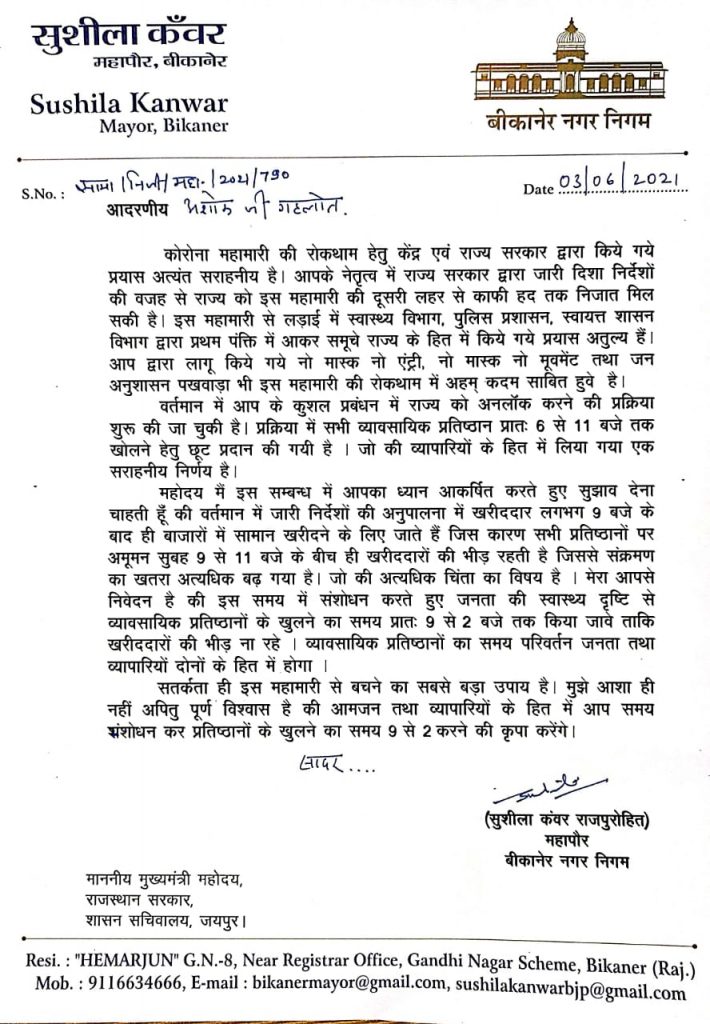 सुशीला कँवर
महापौर, बीकानेर
Sushila Kanwar
Mayor, Bikaner
बीकानेर नगर निगम
S.No. : /निजी/महा./2021/790
Date 03/06/2021
आदरणीय अशोक जी गहलोत.
कोरोना महामारी की रोकथाम हेतु केंद्र एवं राज्य सरकार द्वारा किये गये
प्रयास अत्यंत सराहनीय है। आपके नेतृत्व में राज्य सरकार द्वारा जारी दिशा निर्देशों
की वजह से राज्य को इस महामारी की दूसरी लहर से काफी हद तक निजात मिल
सकी है। इस महामारी से लड़ाई में स्वास्थ्य विभाग, पुलिस प्रशासन, स्वायत्त शासन
विभाग द्वारा प्रथम पंक्ति में आकर समूचे राज्य के हित में किये गये प्रयास अतुल्य हैं।
आप द्वारा लागू किये गये नो मास्क नो एंट्री, नो मास्क नो मूवमेंट तथा जन
अनुशासन पखवाड़ा भी इस महामारी की रोकथाम में अहम् कदम साबित हुवे है।
वर्तमान में आप के कुशल प्रबंधन में राज्य को अनलॉक करने की प्रक्रिया
शुरू की जा चुकी है। प्रक्रिया में सभी व्यावसायिक प्रतिष्ठान प्रातः 6 से 11 बजे तक
खोलने हेतु छूट प्रदान की गयी है । जो की व्यापारियों के हित में लिया गया एक
सराहनीय निर्णय है।
महोदय मैं इस सम्बन्ध में आपका ध्यान आकर्षित करते हुए सुझाव देना
चाहती हूँ की वर्तमान में जारी निर्देशों की अनुपालना में खरीददार लगभग 9 बजे के
बाद ही बाजारों में सामान खरीदने के लिए जाते हैं जिस कारण सभी प्रतिष्ठानों पर
अमूमन सुबह 9 से 11 बजे के बीच ही खरीददारों की भीड़ रहती है जिससे संक्रमण
का खतरा अत्यधिक बढ़ गया है। जो की अत्यधिक चिंता का विषय है । मेरा आपसे
निवेदन है की इस समय में संशोधन करते हुए जनता की स्वास्थ्य दृष्टि से
व्यावसायिक प्रतिष्ठानों के खुलने का समय प्रातः 9 से 2 बजे तक किया जावे ताकि
खरीददारों की भीड़ ना रहे । व्यावसायिक प्रतिष्ठानों का समय परिवर्तन जनता तथा
व्यापारियों दोनों के हित में होगा ।
सतर्कता ही इस महामारी से बचने का सबसे बड़ा उपाय है। मुझे आशा ही
नहीं अपितु पूर्ण विश्वास है की आमजन तथा व्यापारियों के हित में आप समय
संशोधन कर प्रतिष्ठानों के खुलने का समय 9 से 2 करने की कृपा करेंगे।
सादर....
(सुशीला कंवर राजपुरोहित)
महापौर
बीकानेर नगर निगम
माननीय मुख्यमंत्री महोदय,
राजस्थान सरकार,
शासन सचिवालय, जयपुर।
Resi. : "HEMARJUN" G.N.-8, Near Registrar Office, Gandhi Nagar Scheme, Bikaner (Raj.)
Mob. : 9116634666, E-mail : bikanermayor@gmail.com, sushilakanwarbjp@gmail.com